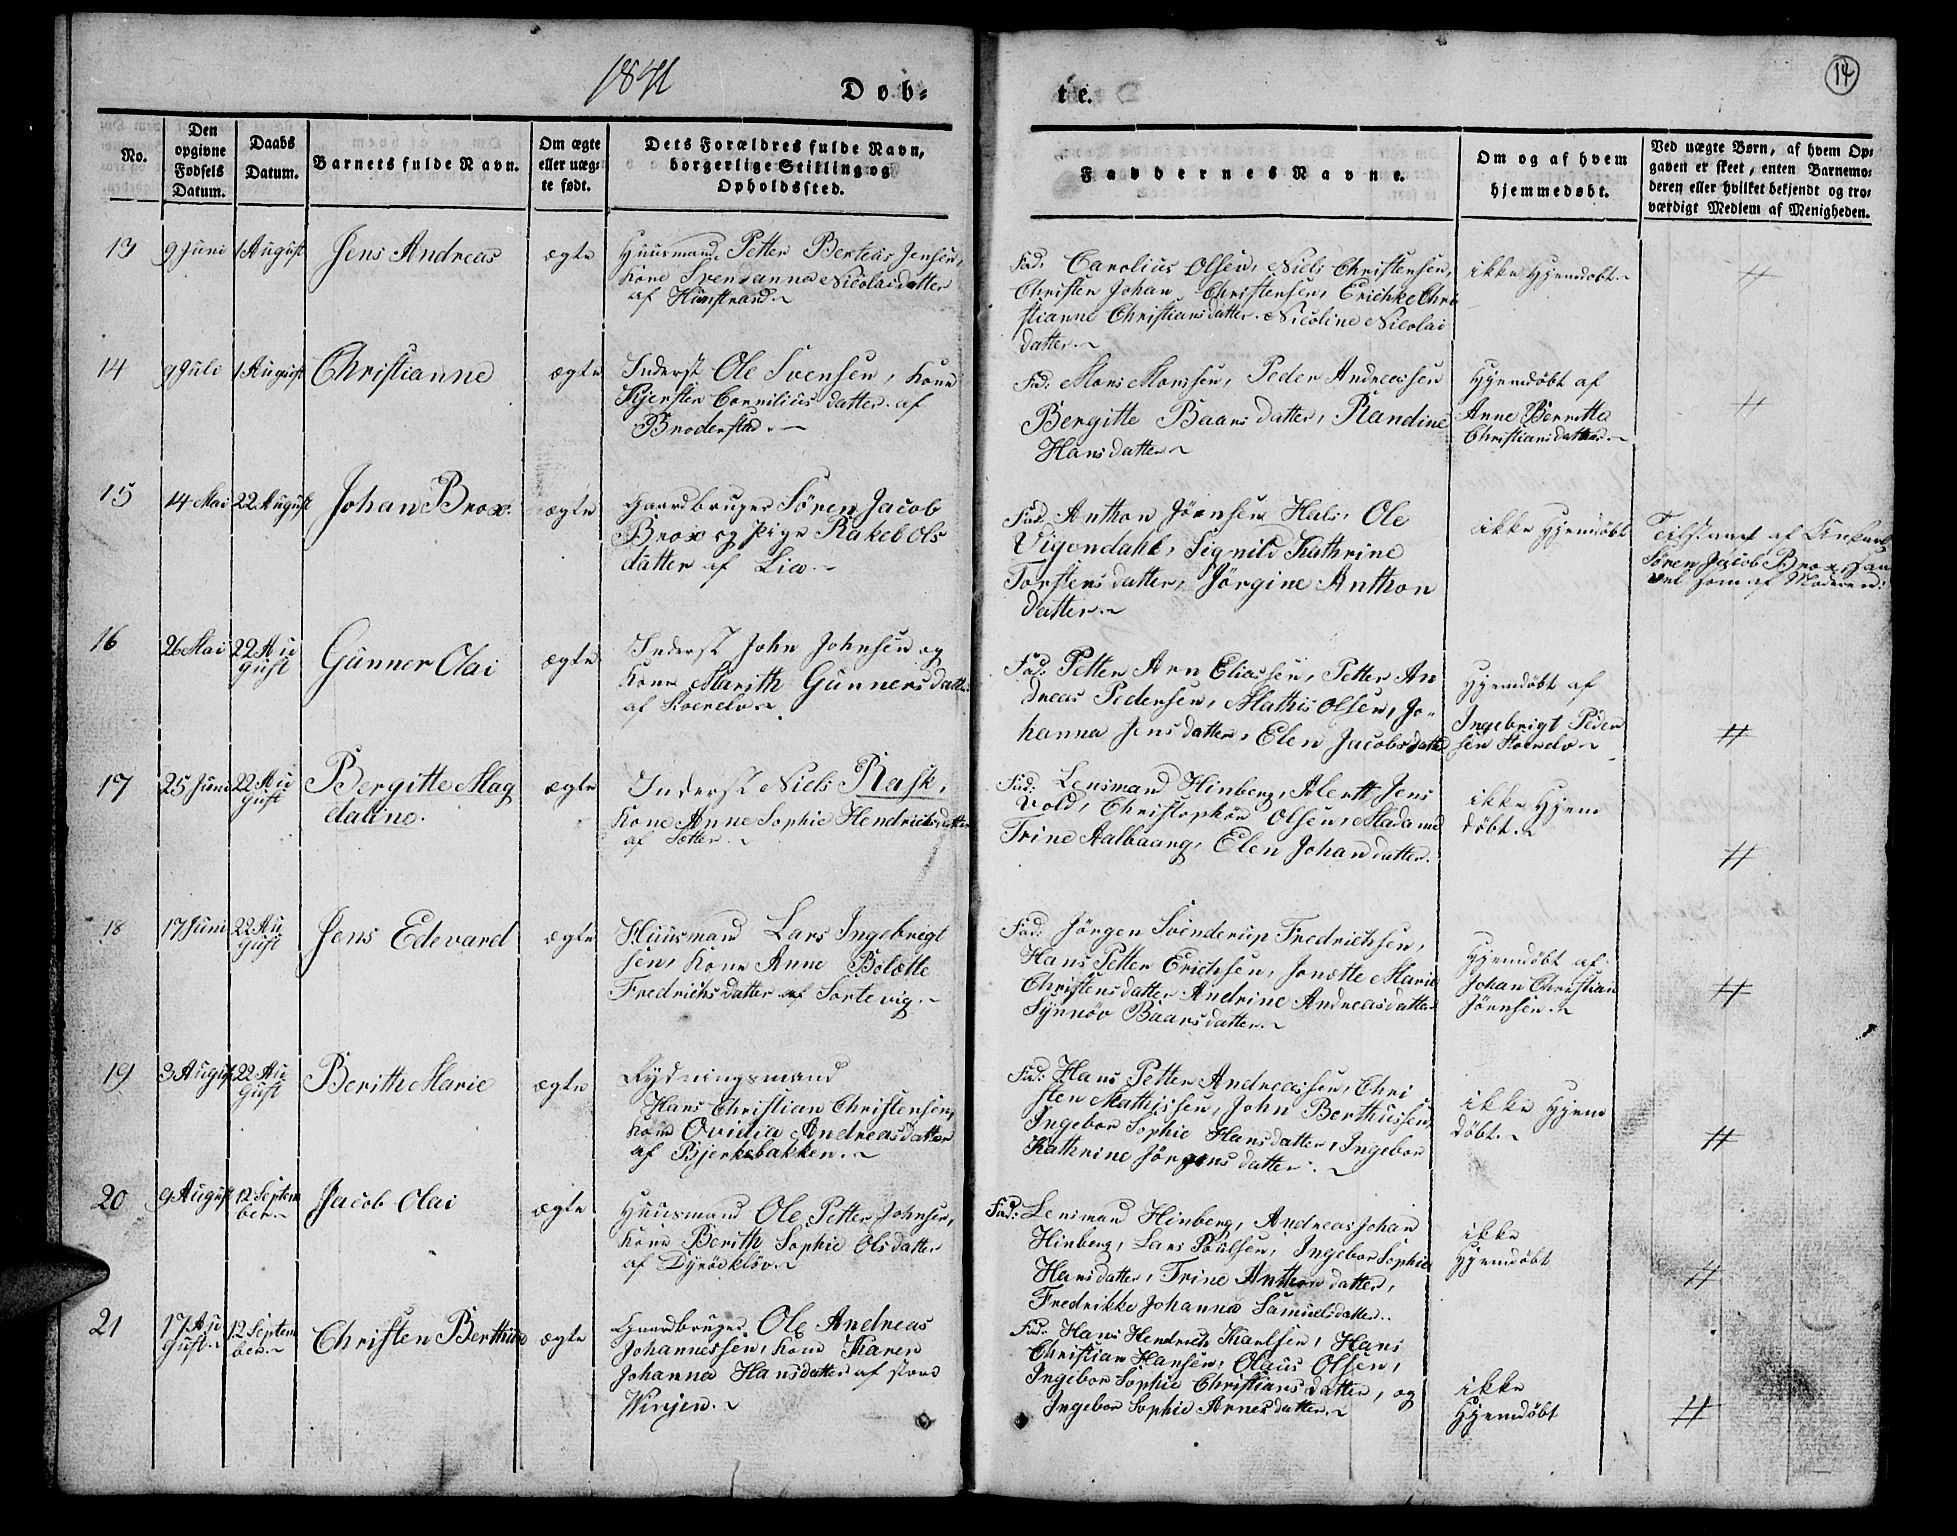 1841
Døb-
te.
14
No.
Den
opgivne
Fødsels
Datum.
Daabs
Datum.
Barnets fulde Navn.
Om ægte
eller uæg-
te født.
Dets Forældres fulde Navn,
borgerlige Stilling og
Opholdssted.
Faddernes Navne.
Om og af hvem
hjemmedøbt.
Ved uægte Børn, af hvem Op-
gaven er skeet, enten Barnemo-
deren eller hvilket bekjendt og tro-
værdigt Medlem af Menigheden.
13
9 Juni
1 August
Jens Andreas
ægte
Huusmand Petter Berteas Jensen,
Kone Svenanna Nicolaidatter
af Hunstrand.
Fad: Carolius Olsen, Niels Christensen,
Christen Johan Christensen, Erichke Chri
stianne Christiansdatter. Nicoline Nicolai
datter.
ikke Hjemdøbt.
//
14
9 Juli
1 August
Christianne
ægte
Inderst Ole Svensen, Kone
Kjersten Cornilius datter af
Broderstad.
Fad: Mons Monssen, Peder Andreassen
Bergitte Baars datter, Randine
Hans datter
Hjemdøbt af
Anne Bernette
Christiansdatter.
//
15
14 Mai
22 August
Johan Brox.
ægte
Gaardbruger Søren Jacob
Brox og Pige Rakel Ols
datter af Lia.
Fad: Anthon Jørnsen Hals, Ole
Vigendahl, Signild Kathrine
Torstens datter, Jørgine Anthon
datter.
ikke Hjemdøbt
Tilstaaet af Enkem.
Søren Jacob Brox, saa
vel som af Moderen.
16
26 Mai
22 Au
gust
Gunner Olai
ægte
Inderst John Johnsen og
Kone Marith Gunners datter
af Koerelv.
Fad: Petter Arn Eliassen, Petter An
dreas Pedersen, Mathis Olsen, Jo-
hanna Jens datter, Elen Jacobsdatter
Hjemdøbt af
Ingebrigt Peder
sen Koerelv
//
17
25 Juni
22 Au
gust
Bergitte Mag
daline.
ægte
Inderst Niels Rask,
Kone Anne Sophie Hendrichsdatter
af Søtter.
Fad: Lensmand Hinberg, Alertt Jens
Vold, Christopher Olsen, Madame
Trine Aalbaang, Elen Johan datter.
ikke Hjem
døbt.
//
18
17 Juni
22 Au
gust
Jens Edevard
ægte
Huusmand Lars Ingebrigt
sen, Kone Anne Bolætte
Fredrichs datter af Sortevig.
Fad: Jörgen Svenderup Fredrichsen,
Hans Petter Erichsen, Jonætte Marie
Christens datter Andrine Andreasdatter
Synnöv Baarsdatter.
Hjemdøbt af
Johan Christian
Jörnsen.
//
19
3 August
22 Au
gust
Berith Marie
ægte
Rydningsmand
Hans Christian Christensen,
Kone Ovidia Andreasdatter
af Bjerkebakken.
Fad: Hans Petter Andreassen, Chri
sten Mathissen, John Berthiussen,
Ingebor Sophie Hansdatter, Ingebor
Kathrine Jörgens datter.
ikke Hjem
døbt.
//
20
9 August
12 Septem
ber.
Jacob Olai
ægte
Huusmand Ole Petter Johnsen,
Kone Berith Sophie Olsdatter
af Dyröeklöv.
Fad: Lensmand Hinberg, Andreas Johan
Hinberg, Lars Poulsen, Ingebor Sophie
Hansdatter, Trine Anthon datter,
Fredrikke Johanna Samuelsdatter.
ikke
Hjemdøbt
//
21
17 Au
gust.
12 Septem
ber.
Christen Berthius
ægte
Gaardbruger Ole Andreas
Johannessen, Kone Karen
Johanna Hansdatter af store
Winjen.
Fad: Hans Hendrich Karlsen, Hans
Christian Hansen, Olaus Olsen,
Ingebor Sophie Christians datter, og
Ingebor Sophie Arnes datter.
ikke
Hjemdøbt
//